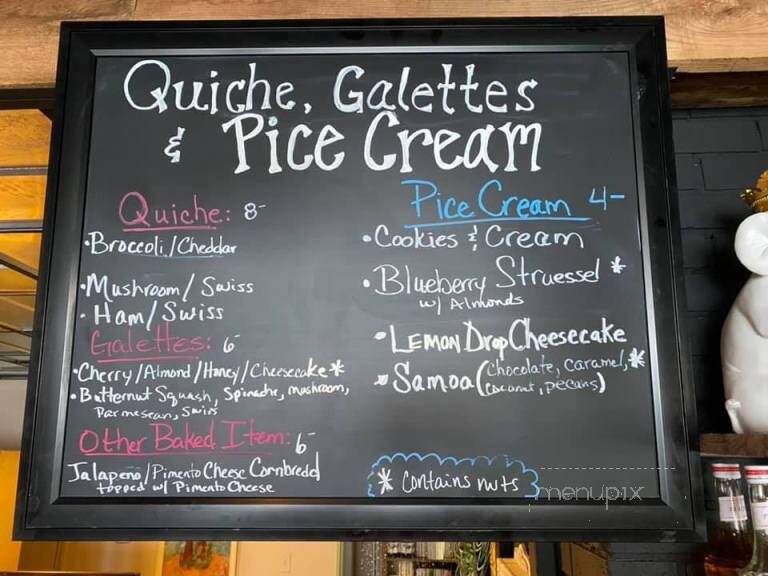 Quiche, Galettes
& Pice Cream
Quiche: 8-
• Broccoli/Cheddar
• Mushroom/Swiss
• Ham/Swiss
Galettes: 6-
• Cherry/Almond/Honey/Cheesecake *
• Butternut Squash, Spinache, mushroom,
Parmesean, Swiss
Other Baked Item: 6-
Jalapeno/Pimento Cheese Cornbread
topped w/ Pimento Cheese
Pice Cream 4-
• Cookies & Cream
• Blueberry Struessel *
w/ Almonds
• Lemon Drop Cheesecake
• Samoa (Chocolate, caramel, *
Coconut, pecans)
* Contains nuts
menupix